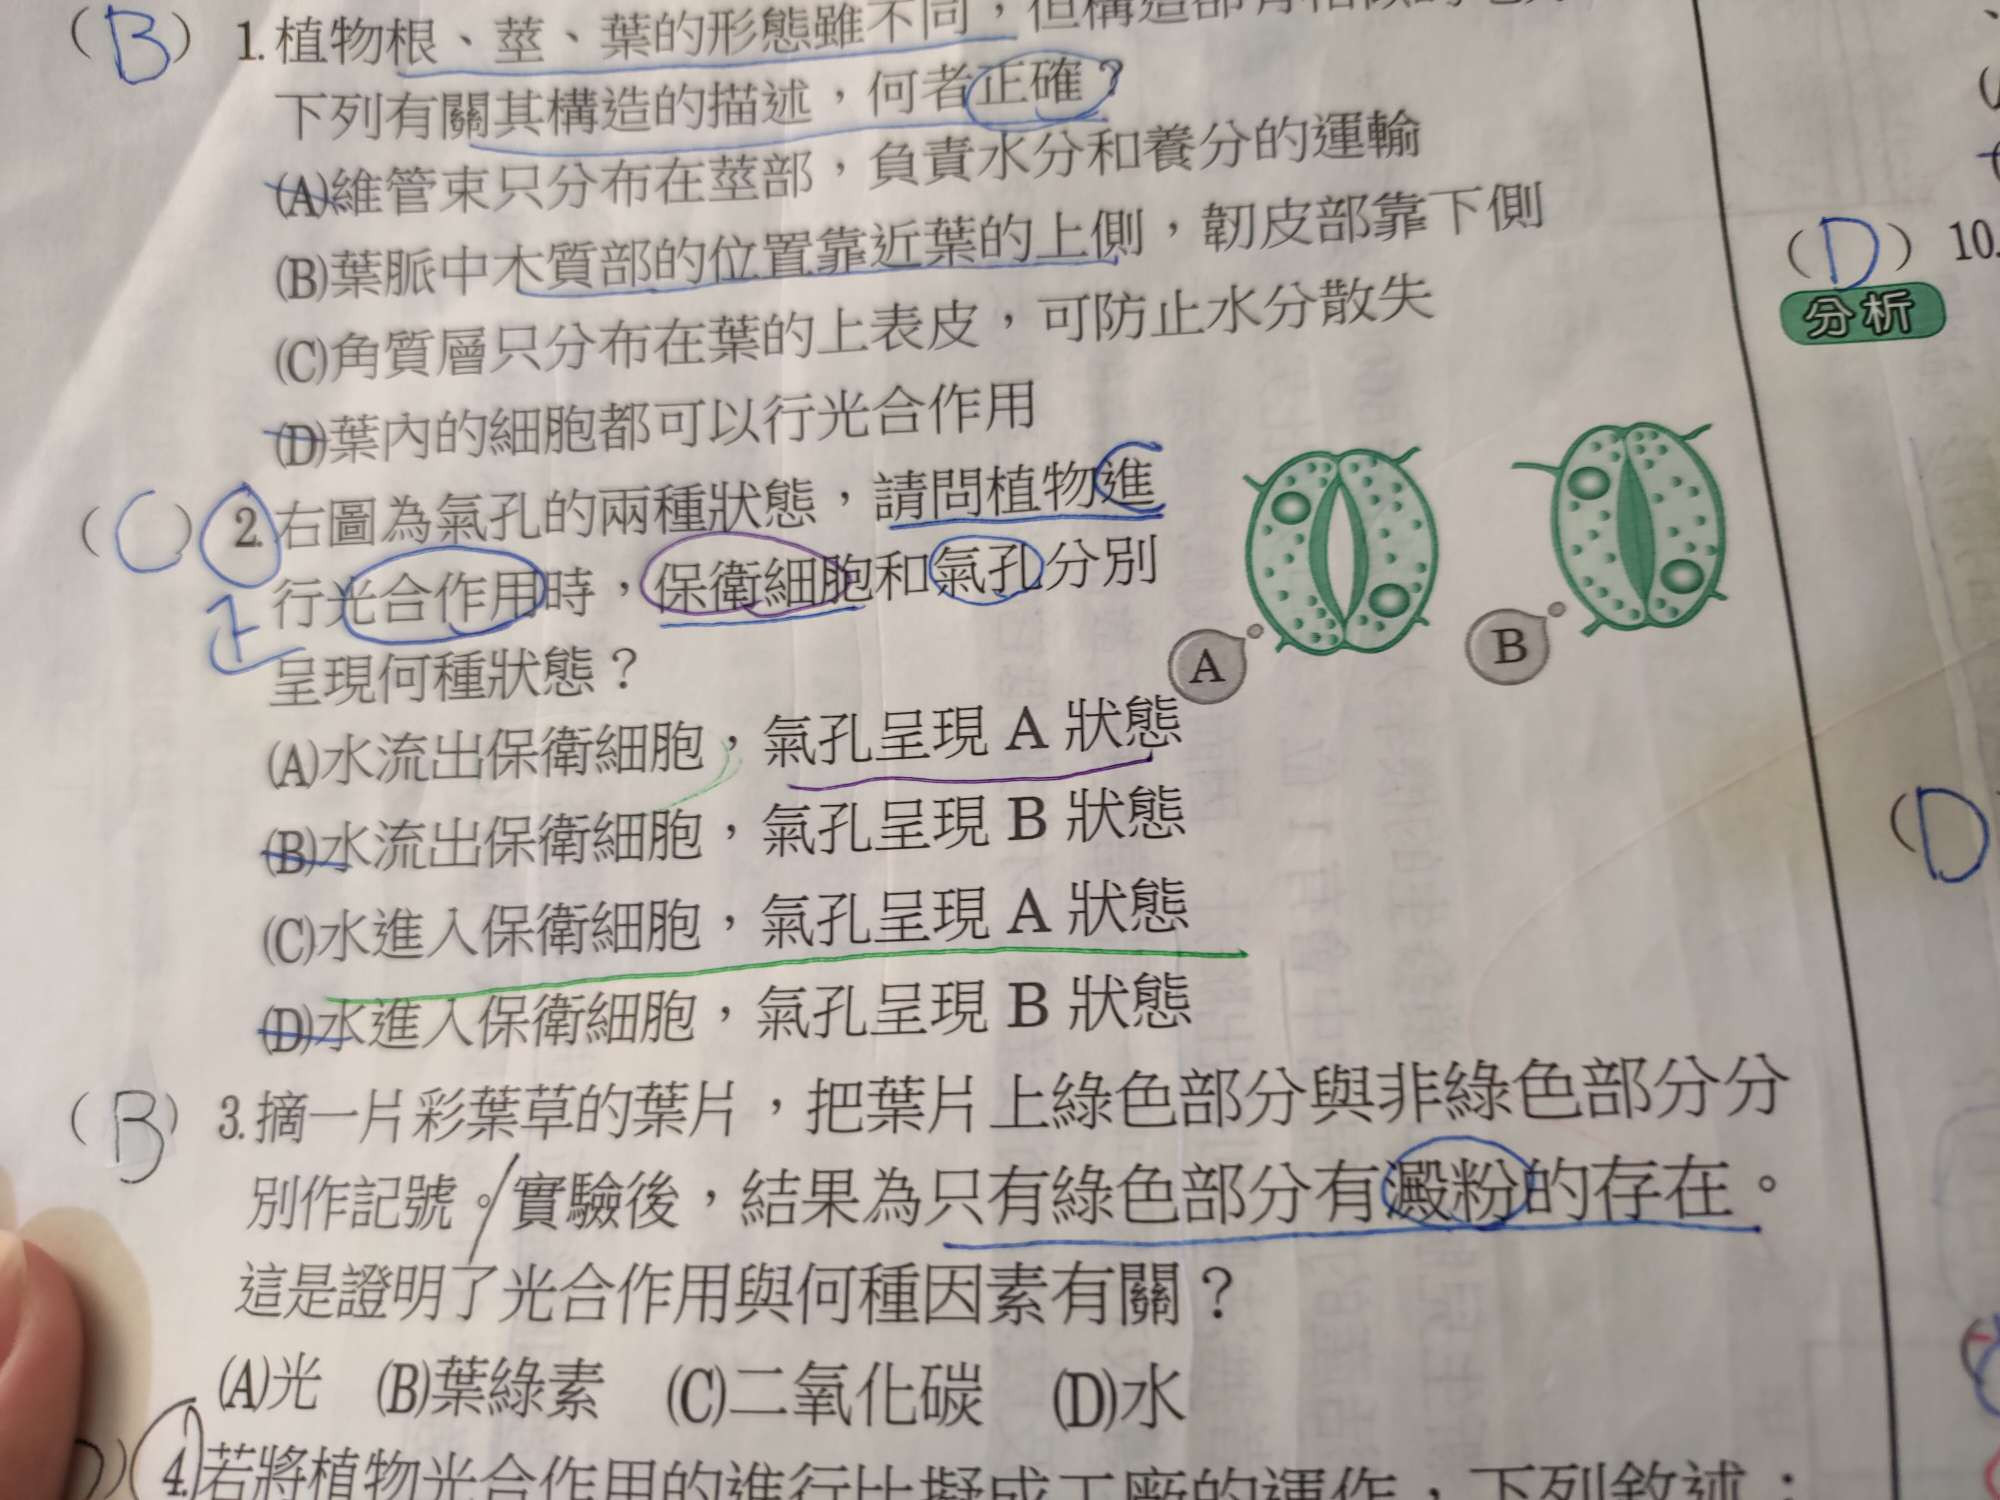 (B) 1.植物根、莖、葉的形態雖不同，但構造都有相似的
下列有關其構造的描述，何者正確？
(A)維管束只分布在莖部，負責水分和養分的運輸
(B)葉脈中木質部的位置靠近葉的上側，韌皮部靠下側
(C)角質層只分布在葉的上表皮，可防止水分散失
(D)葉內的細胞都可以行光合作用
(C) 2.右圖為氣孔的兩種狀態，請問植物進
行光合作用時，保衛細胞和氣孔分別
呈現何種狀態？
A
B
(A)水流出保衛細胞，氣孔呈現 A 狀態
(B)水流出保衛細胞，氣孔呈現 B 狀態
(C)水進入保衛細胞，氣孔呈現 A 狀態
(D)水進入保衛細胞，氣孔呈現 B 狀態
(B) 3.摘一片彩葉草的葉片，把葉片上綠色部分與非綠色部分分
別作記號。實驗後，結果為只有綠色部分有澱粉的存在。
這是證明了光合作用與何種因素有關？
(A)光 (B)葉綠素 (C)二氧化碳 (D)水
4.若將植物光合作用的進行比擬成工廠的運作，下列敘述：
(D) 10.
分析
(D